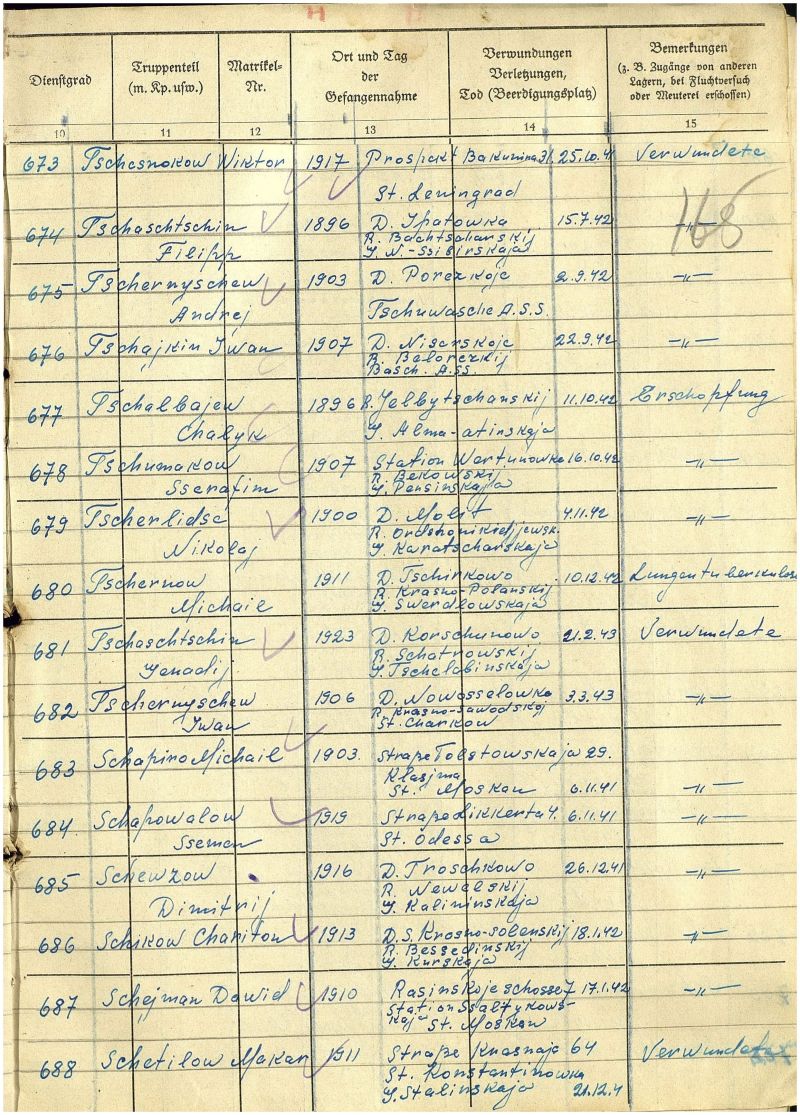 Dienstgrad Truppenteil (m. Kp. usw.) Matrikel-Nr. Ort und Tag der Gefangennahme Verwundungen Verletzungen, Tod (Beerdigungsplatz) Bemerkungen (z. B. Zugänge von anderen Lagern, bei Fluchtversuch oder Meuterei erschossen)
10 11 12 13 14 15
673 Tschesnokow Wiktor 1917 Prospekt Bakunina 31. 25.10.41 Verwundete
St. Leningrad
168
674 Tschaschtschin 1896 D. Ipatowka 15.7.42 -„-
Filipp R.
J. N.-Ssibirskaja
675 Tschernyschew 1903 D. Porezkoje 2.9.42 -„-
Andrej Tschuwasche A.S.S.
676 Tschajkin Iwan 1907 D. Niserskoje 22.9.42 -„-
R. Belorezkij
Basch. A.SS.
677 Tschalbajew 1896 R. Jelbytschanskij 11.10.42 Erschöpfung
Chalyk J. Alma-atinskaja
678 Tschumakow 1907 Station Wertunowka 16.10.42 -„-
Sserafim R. Bekowskij
J. Pensinskaja
679 Tscherlidse 1900 D. Molit 4.11.42 -„-
Nikolaj R. Ordshonikidjewsk.
J. Karatscharskaja
680 Tschernow 1911 D. Tschirkowo 10.12.42 Lungentuberkulose
Michail R. Krasno-Polanskij
J. Swerdlowskaja
681 Tschaschtschin 1923 D. Korschunowo 21.2.43 Verwundete
Genadij R. Schatrowskij
J. Tschelabinskaja
682 Tschernyschew 1906 D. Nowosselowka 3.3.43 -„-
Iwan R. Krasno-sawodskoj
St. Charkow
683 Schapiro Michail 1903. Straße Tolstowskaja 29.
Klasjma
St. Moskau 6.11.41 -„-
684. Schapowalow 1919 Straße Likkerta 4. 6.11.41 -„-
Ssemen St. Odessa
685 Schewzow 1916 D. Troschkowo 26.12.41 -„-
Dimitrij R. Newelskij
J. Kalininskaja
686 Schikow Chariton 1913 D.S. Krasno-solenskij 18.1.42 -„-
R. Bessedinskij
J. Kurskaja
687 Schejman Dawid 1910 Rasinskoje schosse 7 17.1.42 -„-
Station Ssaltykows-
kaja St. Moskau
688 Schetilow Makar 1911 Straße Krasnaja 64 Verwundete
St. Konstantinowka
J. Stalinskaja 21.12.4